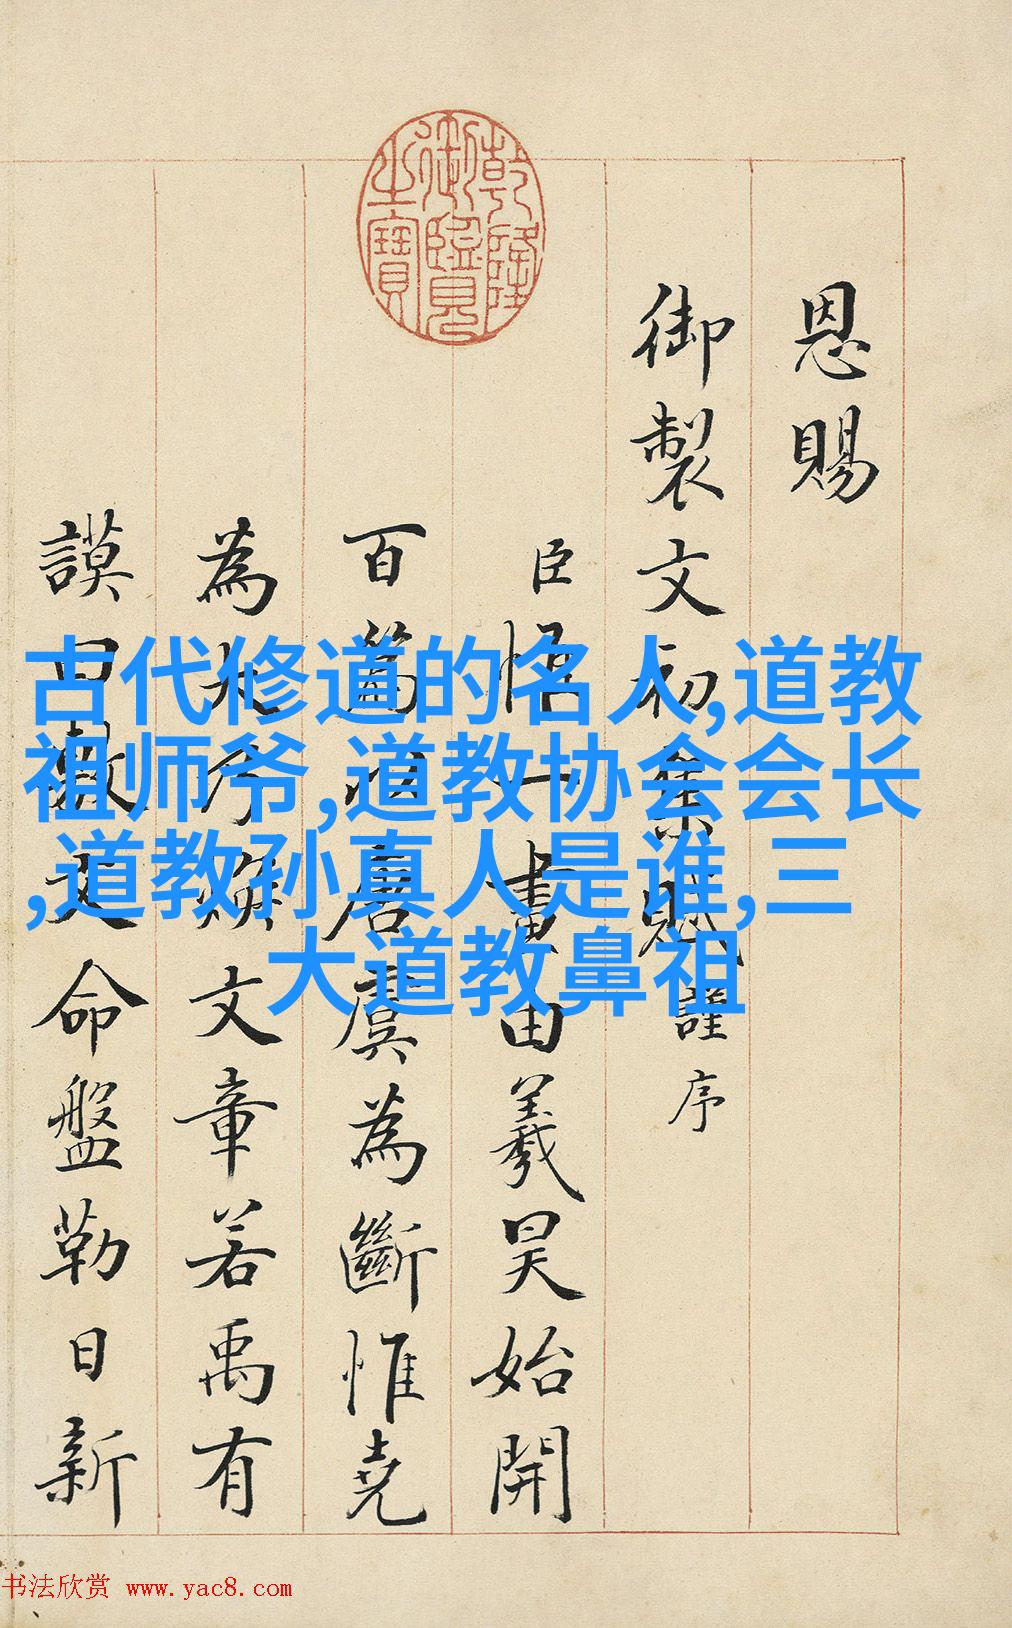 乾隆御覽之寶
恩賜
御製文初集賦謹序
臣一畫由羲昊始開
百篇唐虞為斷惟堯
為大乃煥文章若禹有
謨曰敷文命盤勒日新
古代修道的名人,道教
祖师爷,道教协会会长
,道教孙真人是谁,三
大道教鼻祖
书法欣赏 www.yac8.com